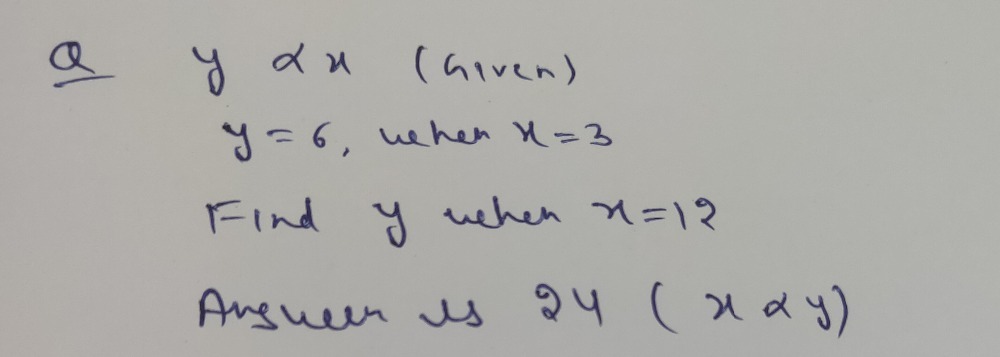 Q y ∝ x (Given)
y = 6, when x = 3
Find y when x = 12
Answer is 24 ( x ∝ y)